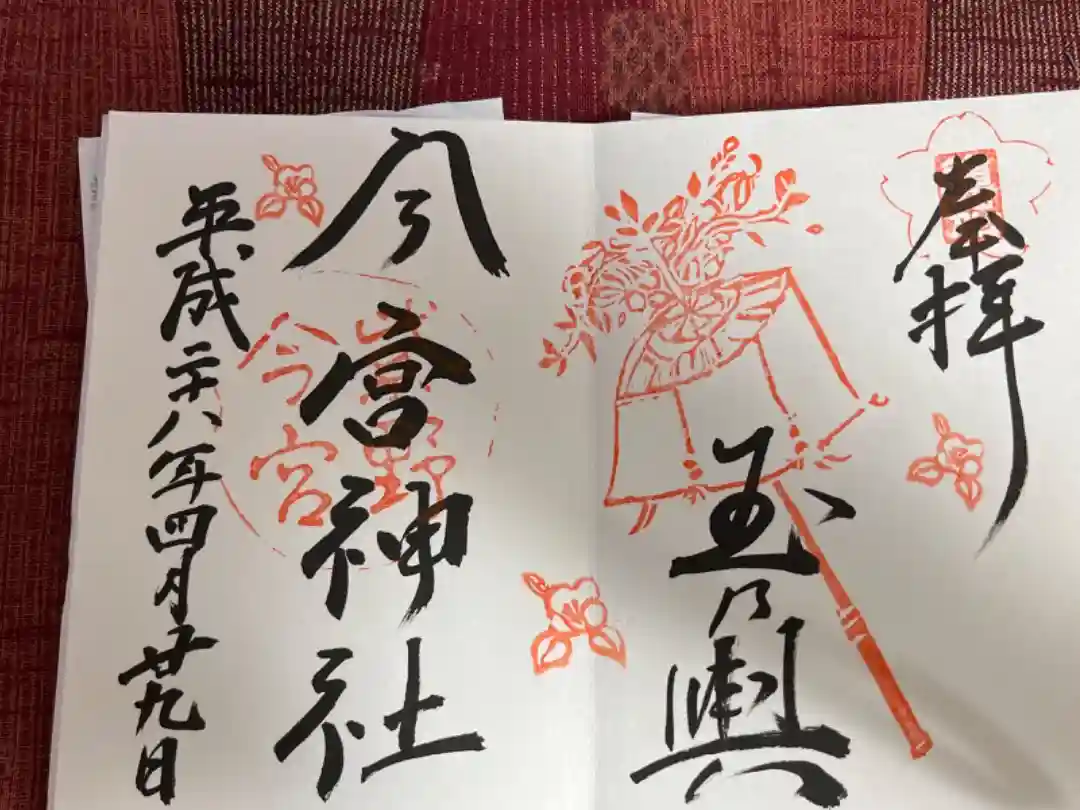 奉拝
玉乃輿
今宮神社
紫野
今宮
平成二十八年四月廿九日